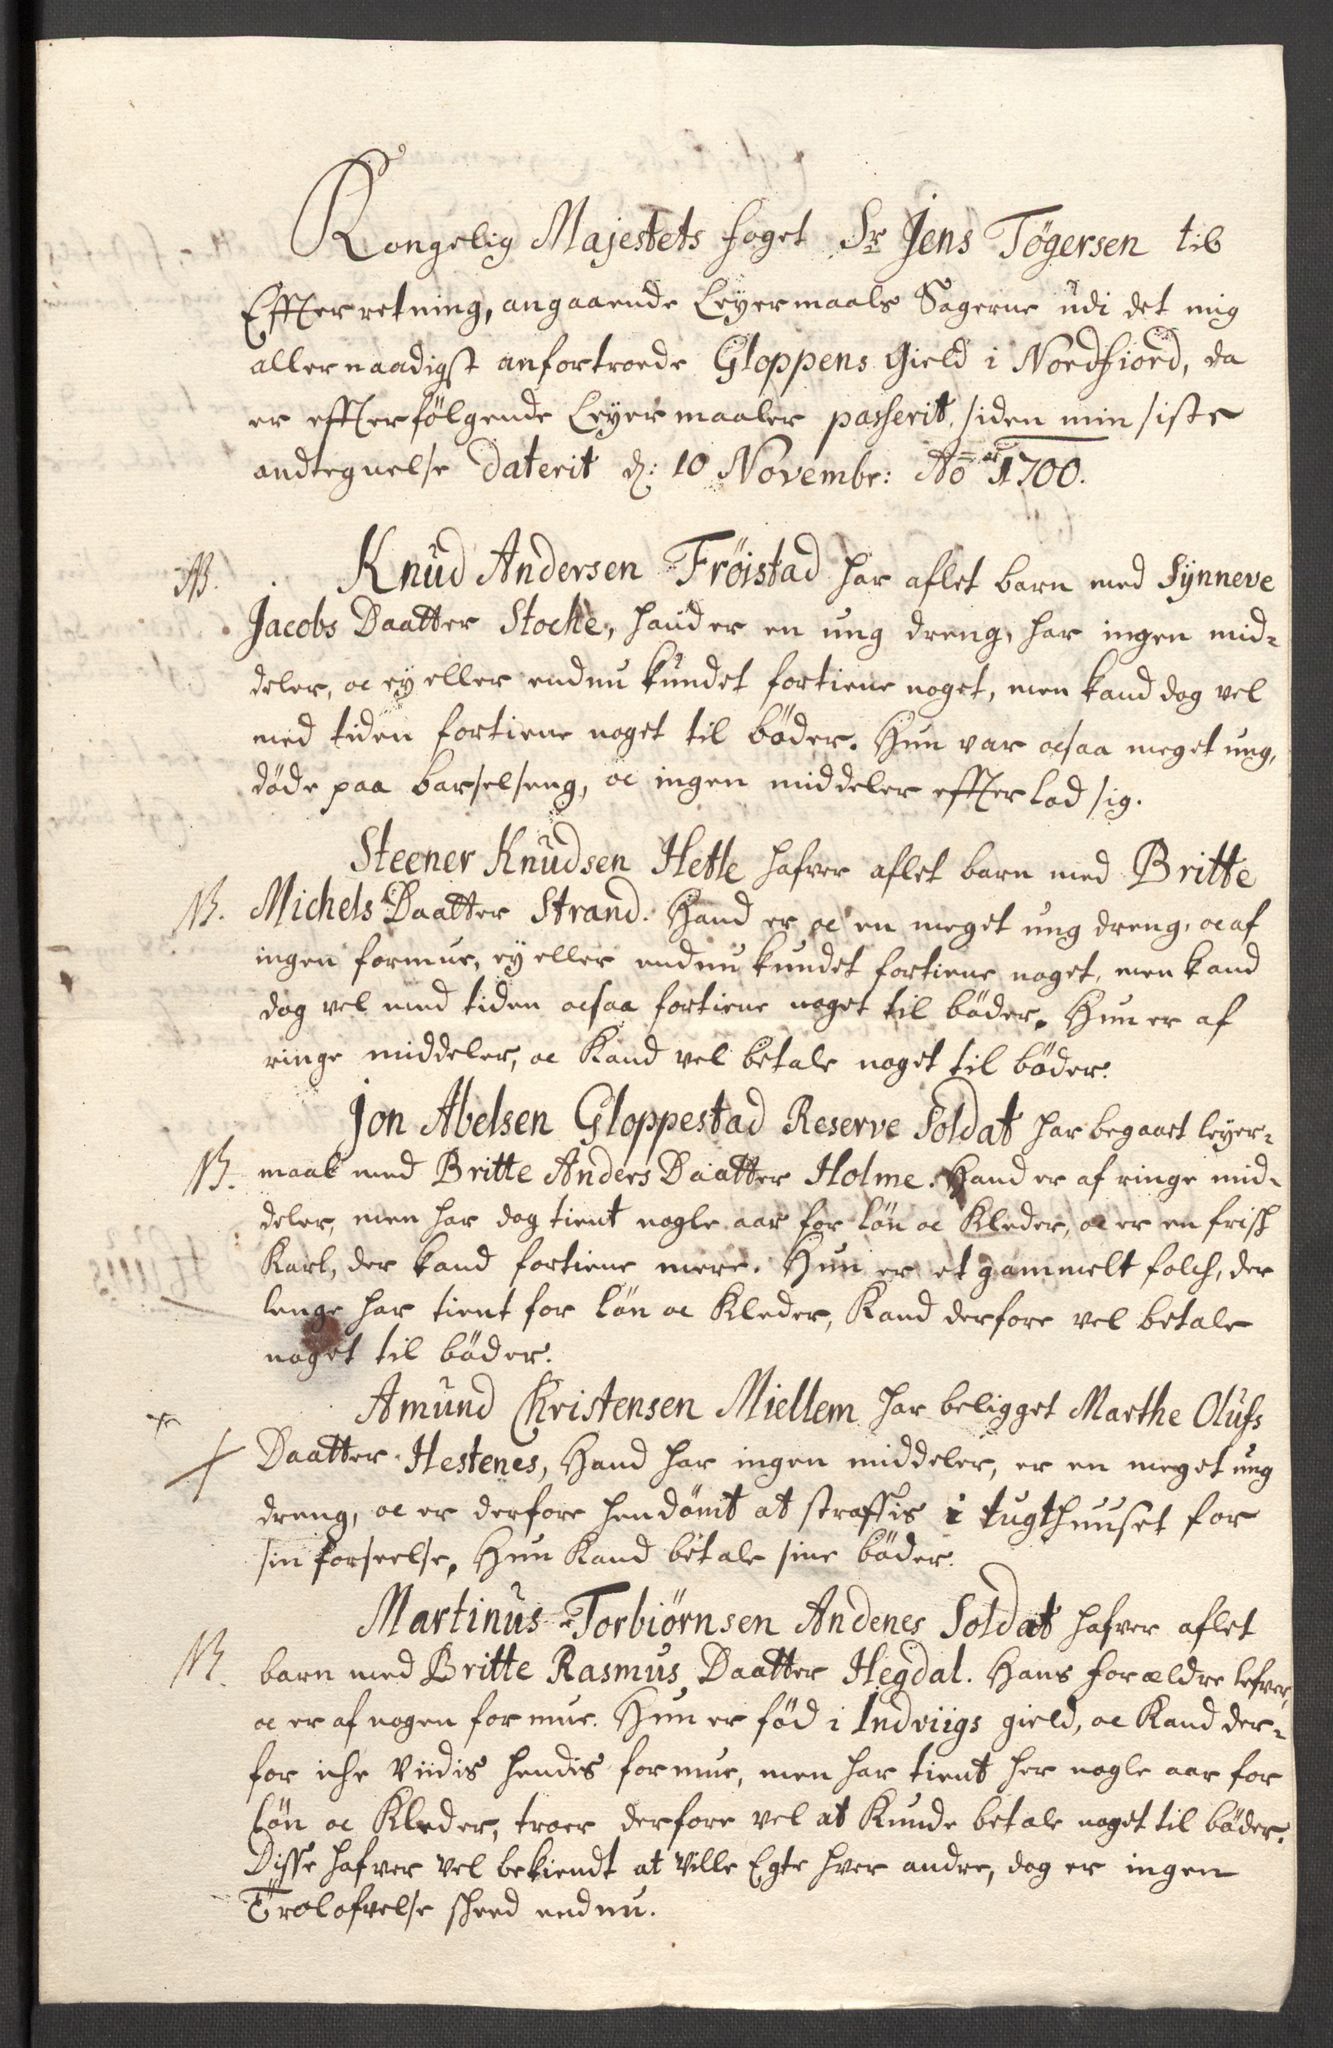 Kongelig Majestets foget Sr Jens Tøgersen til
Effterretning, angaaende Leyermaals Sagerne udi det mig
allernaadigst anfortroede Gloppens Gield i Nordfiord, da
er effterfölgende Leyermaaler passerit, siden min siste
andtegnelse daterit d: 10 Novembr: Ao 1700.
NB. Knud Andersen Frøistad har aflet barn med Synneve
Jacobs Daatter Stocke, hand er en ung dreng, har ingen mid-
deler, oc ey eller endnu kundet fortiene noget, men kand dog vel
med tiden fortiene noget til böder. Hun var ocsaa meget ung,
döde paa barselseng, oc ingen middeler effterlod sig.
Steener Knudsen Hetle hafver aflet barn med Britte
NB. Michels Daatter Strand. Hand er oc en meget ung dreng, oc af
ingen formue, ey eller endnu kundet fortiene noget, men kand
dog vel med tiden ocsaa fortiene noget til böder. Hun er af
ringe middeler, oc Kand vel betale noget til böder.
Jon Abelsen Gloppestad Reserve Soldat har begaaet leyer-
NB. maal med Britte Anders Daatter Holme. Hand er af ringe mid-
deler, men har dog tient nogle aar for lön oc Kleder, oc er en frisk
Karl, der kand fortiene mere. Hun er et gammelt folch, der
lenge har tient for lön oc Kleder, Kand derfore vel betale
noget til böder.
Amund Christensen Miellem har beligget Marthe Olufs
Daatter Hestenes, Hand har ingen middeler, er en meget ung
dreng, oc er derfore hendömt at straffis i tugthuuset for
sin forseelse, Hun Kand betale sine böder.
Martinus Torbiørnsen Andenes Soldat hafver aflet
NB. barn med Britte Rasmus Daatter Hegdal. Hans forældre lefver,
oc er af nogen formue. Hun er föd i Indviigs gield, oc Kand der-
for iche viidis hendis formue, men har tient her nogle aar for
lön oc Kleder, troer derfore vel at Kunde betale noget til böder.
Disse hafver vel bekiendt at ville Egte hver andre, dog er ingen
Trolofvelse skeed endnu.